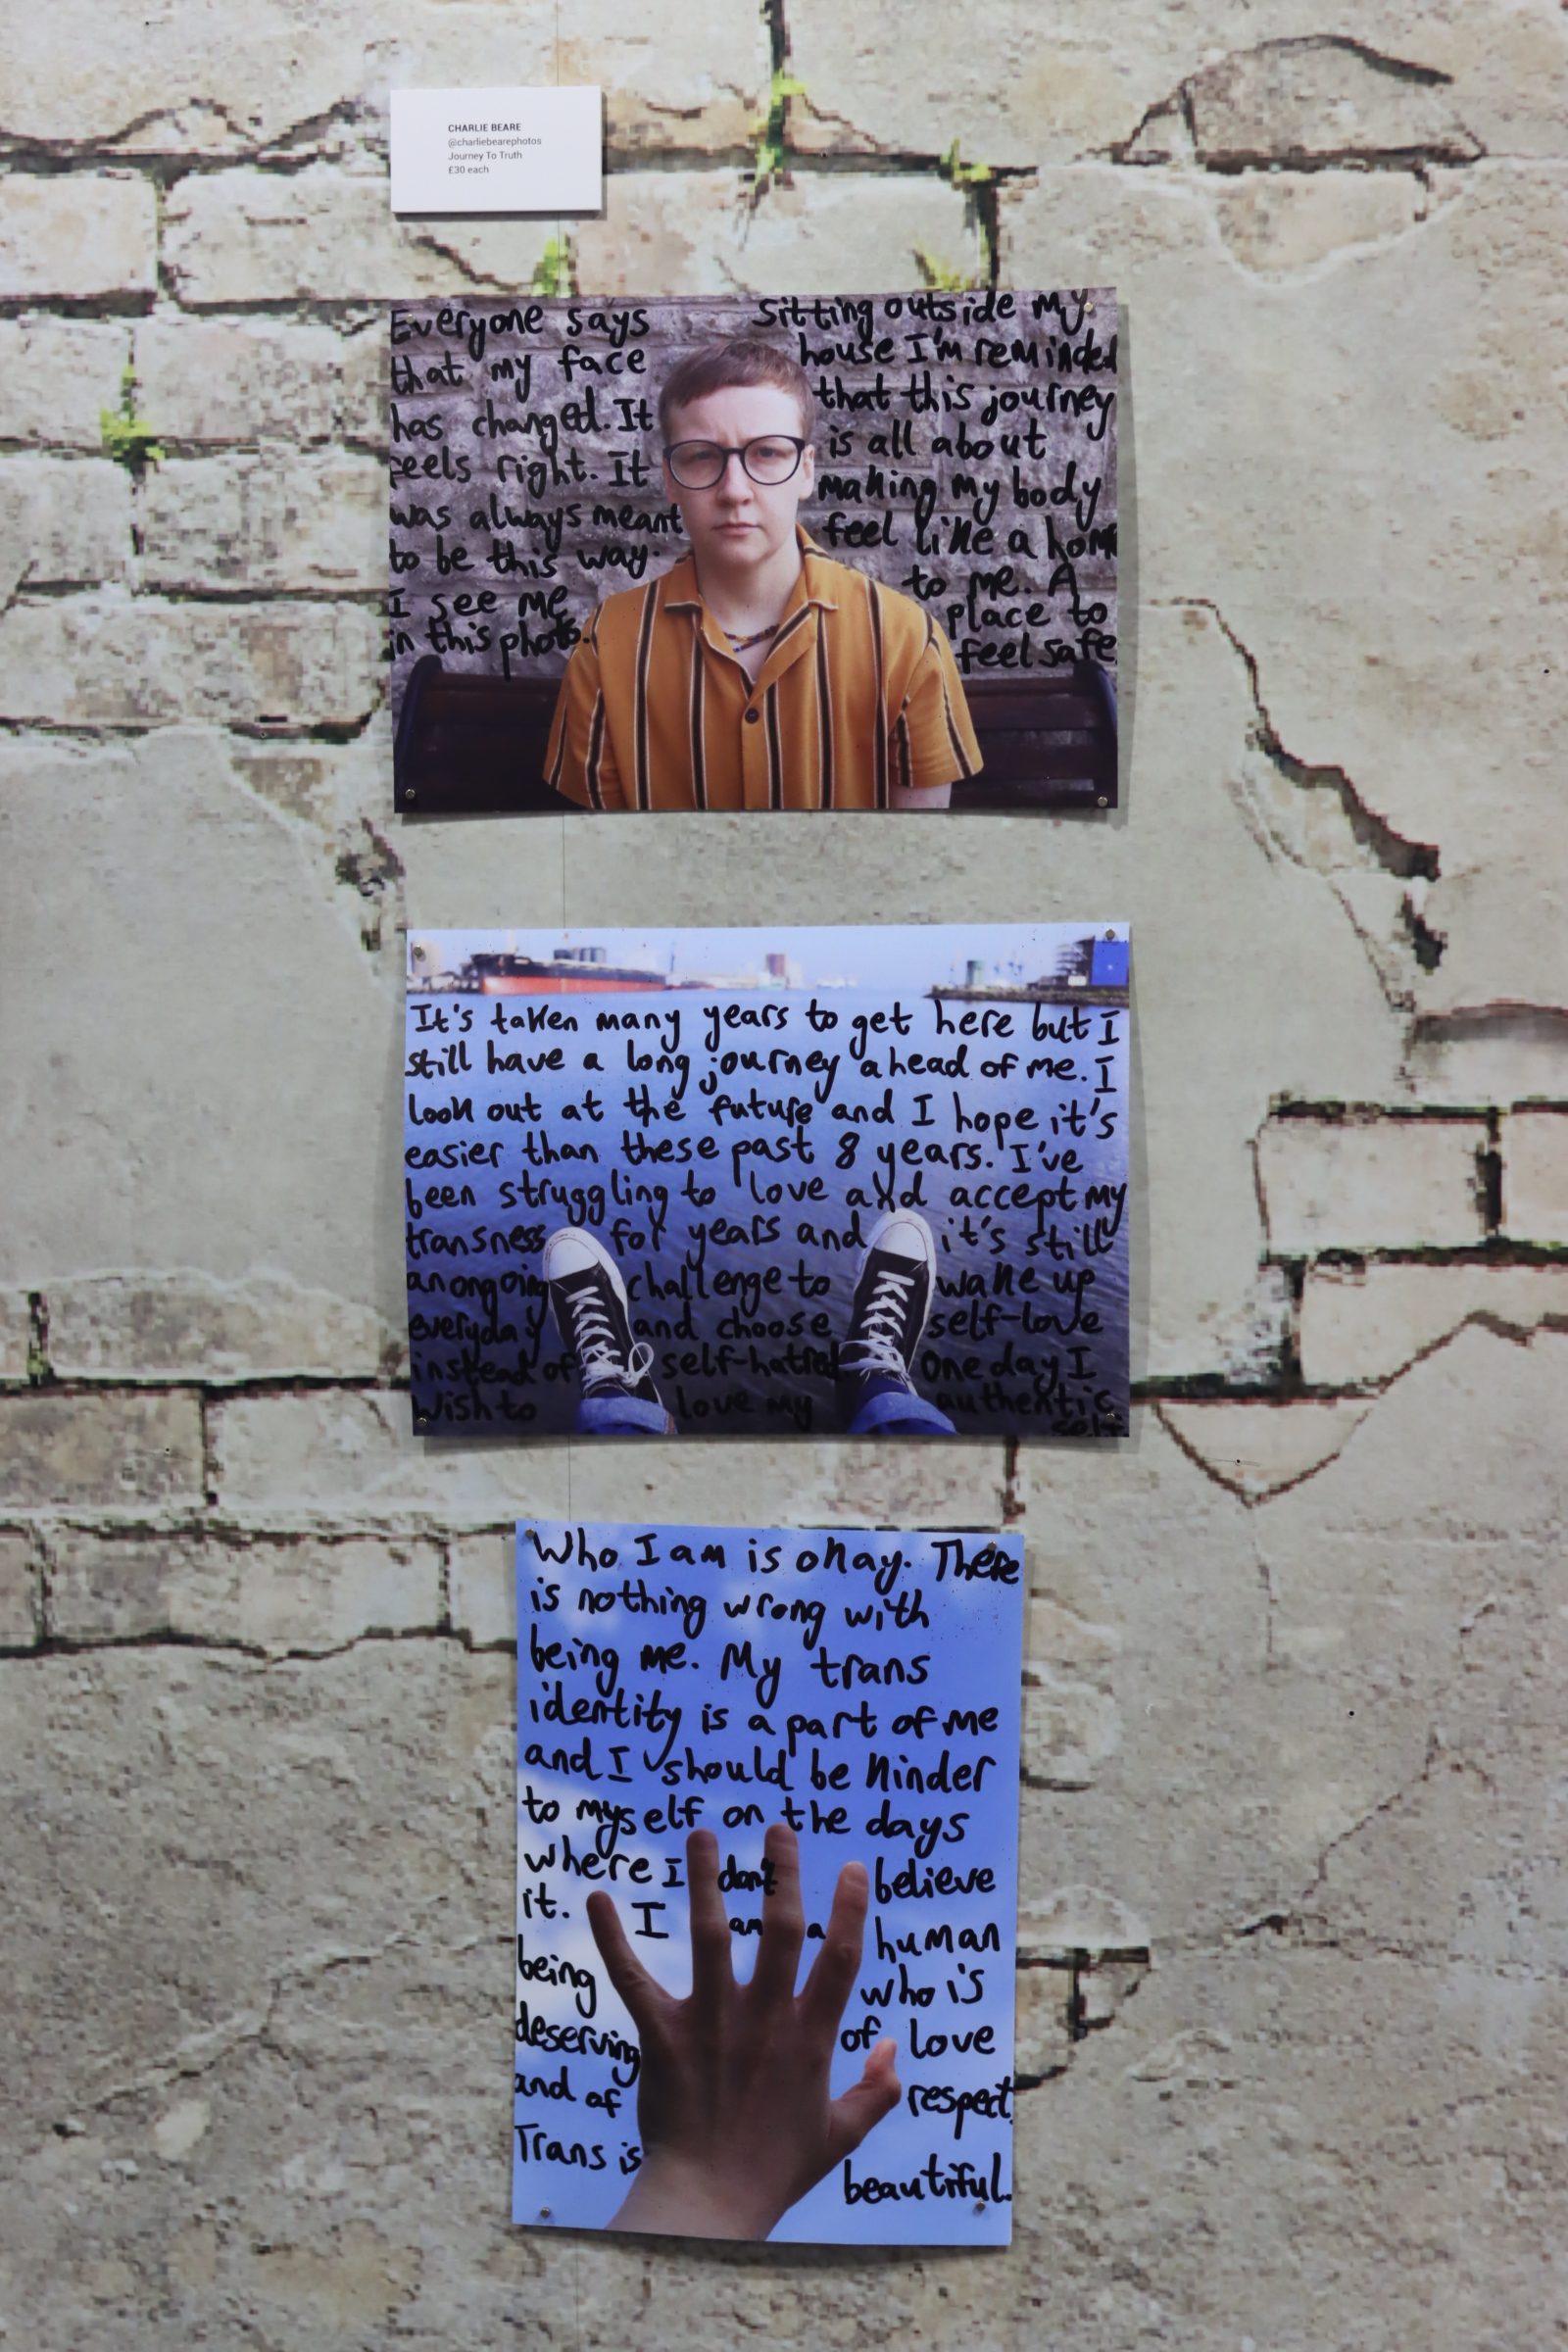 CHARLIE BEARE
@charliebearephotos
Journey To Truth
£30 each
Everyone says
that my face
has changed. It
feels right. It
was always meant
to be this way.
I see me
in this photo.
Sitting outside my
house I'm reminded
that this journey
is all about
making my body
feel like a home
to me. A
place to
feel safe
It's taken many years to get here but I
still have a long journey ahead of me. I
look out at the future and I hope it's
easier than these past 8 years. I've
been struggling to love and accept my
transness for years and it's still
an ongoing challenge to wake up
everyday and choose self-love
instead of self-hatred One day I
wish to love my authentic
self
Who I am is okay. There
is nothing wrong with
being me. My trans
identity is a part of me
and I should be kinder
to myself on the days
where I don't believe
it. I am a human
being who is
deserving of love
and of respect.
Trans is beautiful.